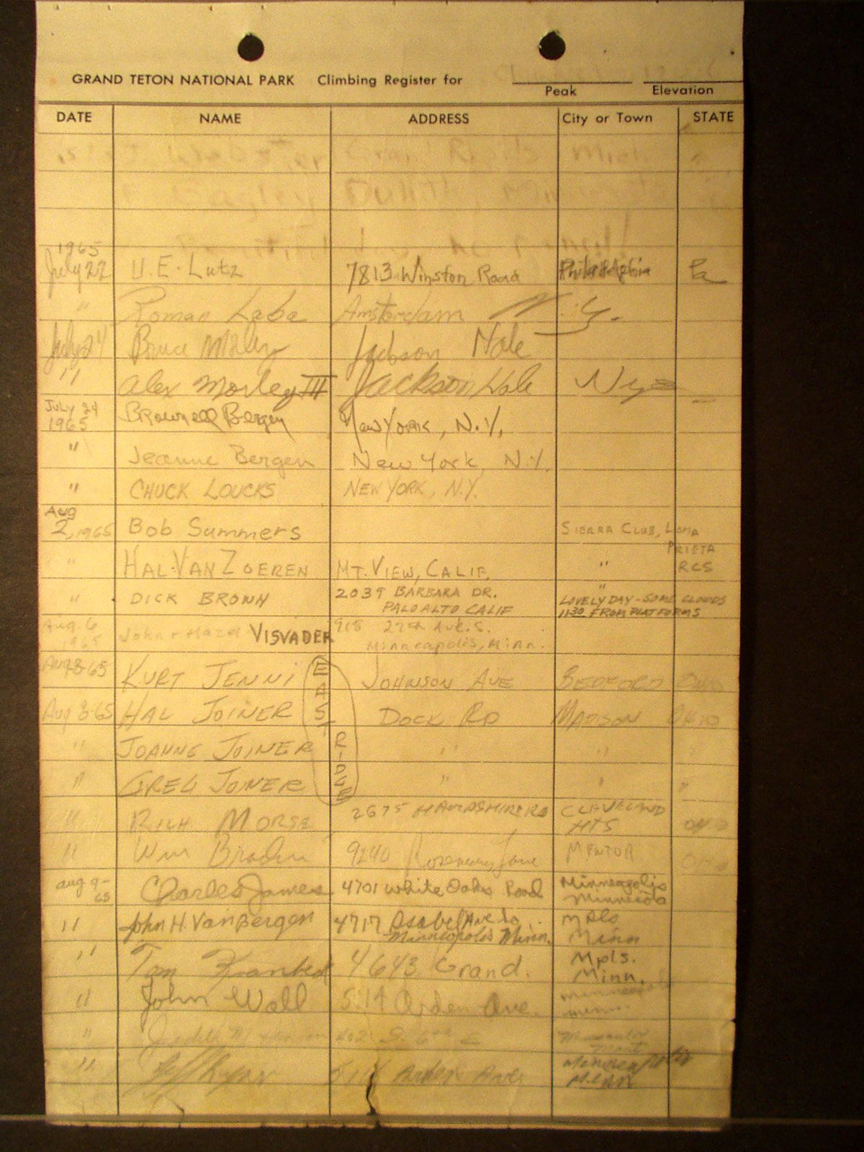 GRAND TETON NATIONAL PARK Climbing Register for
Peak Elevation
DATE NAME ADDRESS City or Town STATE
1965
July 22 U.E. Lutz 7813 Winston Road Philadelphia Pa
" Roman Laba Amsterdam N.Y.
July 24 Bruce Jackson Hole
" Alex Morley III Jackson Hole Wyo
July 24 1965 Brownell Bergen New York, N.Y.
" Jeanne Bergen New York, N.Y.
" CHUCK LOUCKS NEW YORK, N.Y.
Aug 2, 1965 Bob Summers SIERRA CLUB, LOMA PRIETA
" HAL VAN ZOEREN MT. VIEW, CALIF. " RCS
" DICK BROWN 2039 BARBARA DR. "
PALO ALTO CALIF LOVELY DAY - SOME CLOUDS
1130 FROM PLATFORMS
Aug. 6 1965 John + Hazel VISVADER 918 27th Ave. S.
Minneapolis, Minn.
Aug 8-65 KURT JENNI JOHNSON AVE BEDFORD OHIO
Aug 8-65 HAL JOINER DOCK RD MADISON OHIO
" JOANNE JOINER " " "
" GREG JOINER " " "
EAST RIDGE
" RICH MORSE 2675 HAMPSHIRE RD CLEVELAND HTS OHIO
" Wm 9240 Rosemary Lane MENTOR OHIO
Aug 9-65 Charles James 4701 White Oaks Road Minneapolis Minnesota
" John H. VanBergen 4717 Isabel Ave So. Mpls
Minneapolis Minn. Minn
" Tom 4643 Grand. Mpls. Minn.
" John Wall Ave. Minneapolis Minn.
" 402
" Minneapolis Minn